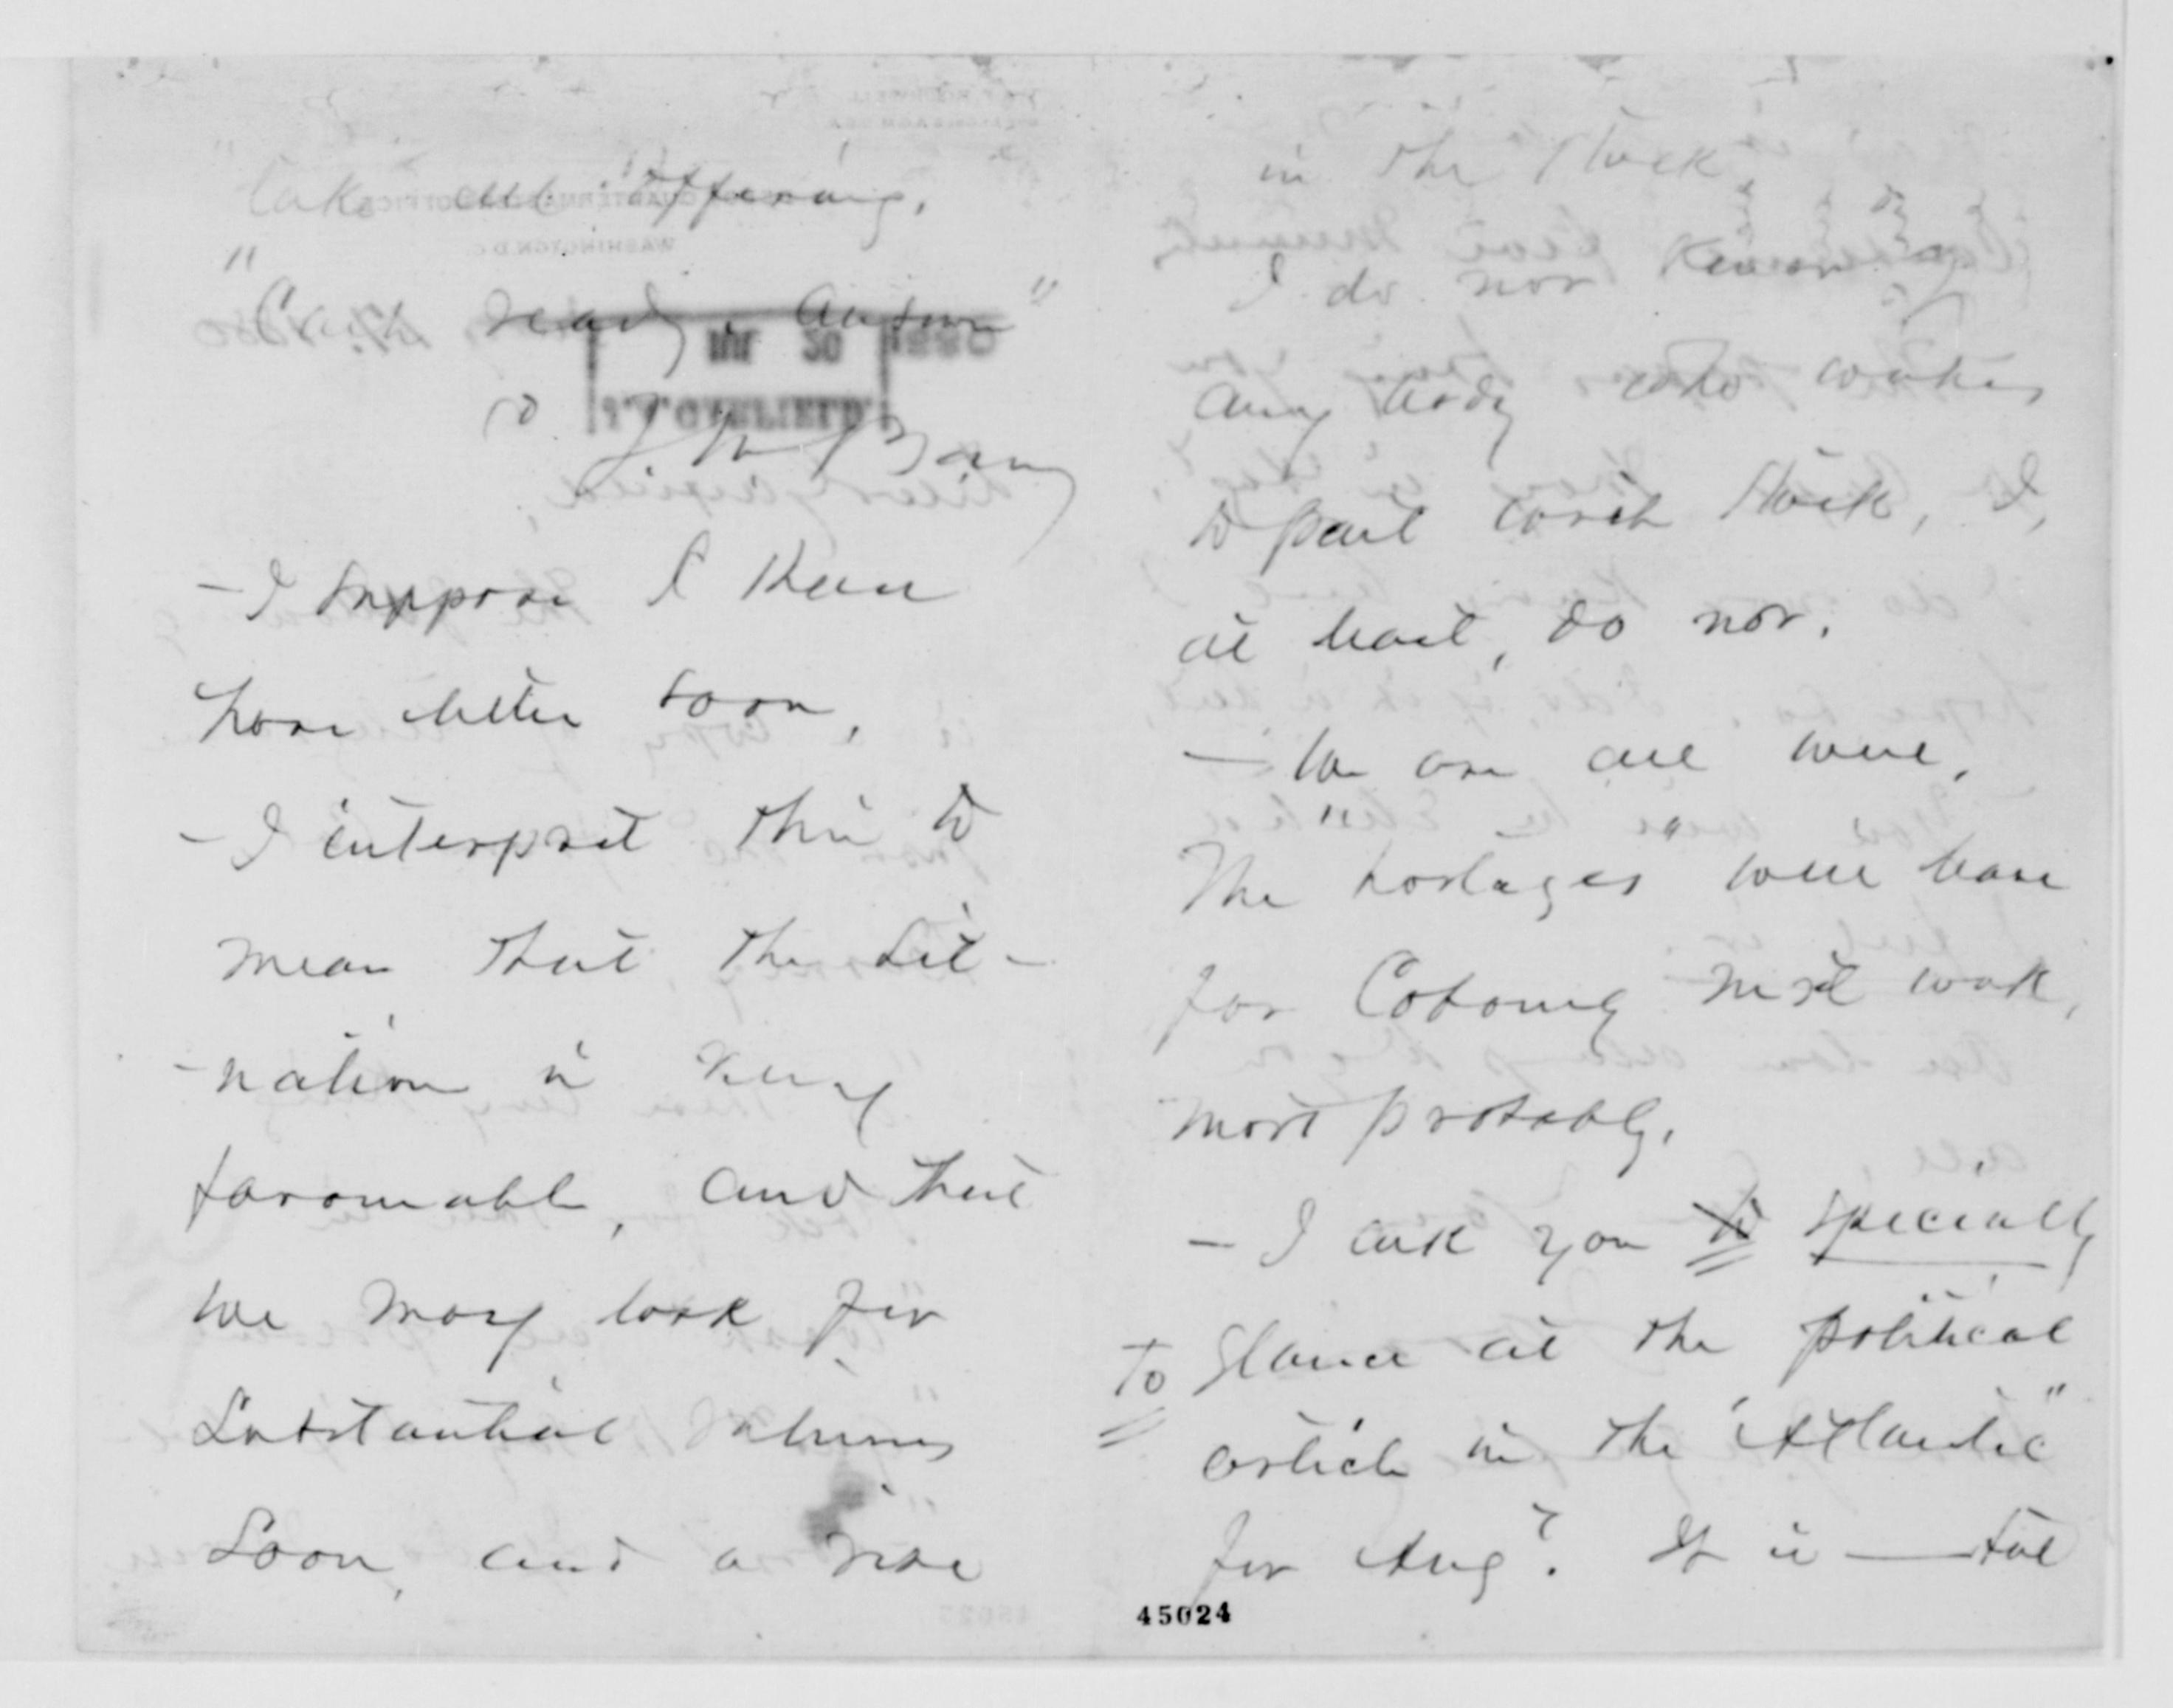 take all offering.
" ready. Antwer "
to
- I suppose I shall
hear better soon.
- I interpret this to
mean that the sit-
- uation is very
favorable, and that
we may look for
substantial returns
soon, and a rise
in the stock.
I do not know
any body who wishes
to part with stock, I,
at least, do not.
- We are all well.
The "hostages" will leave
for Cobourg next week,
most probably.
- I ask you specially
to glance at the political
article in the "Atlantic"
for Aug? It is — full
45024